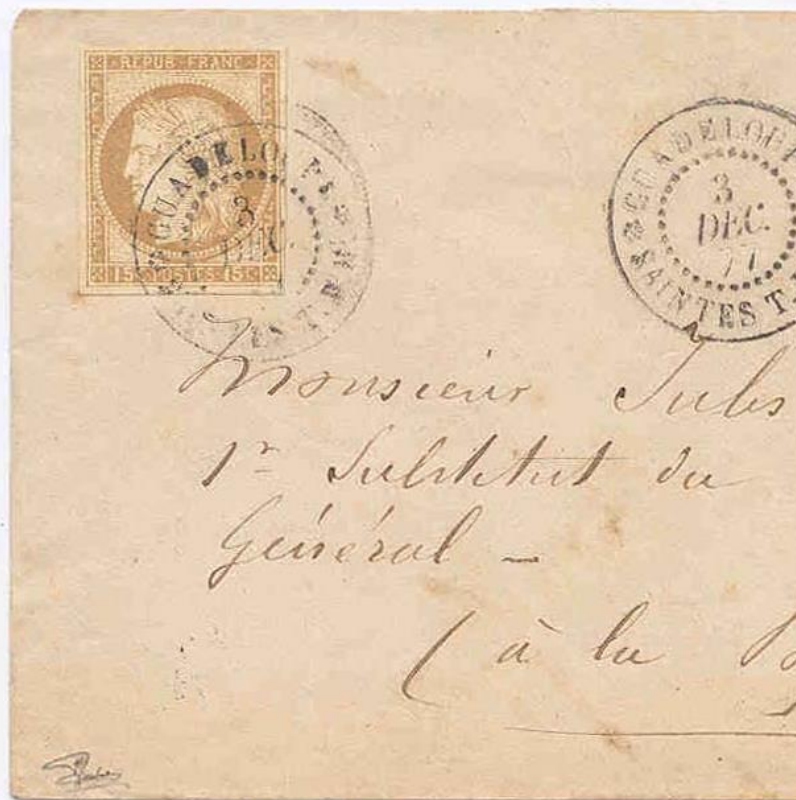 REPUB FRANC
15 POSTES 15C
GUADELOUPE
3
DEC.
GUADELOUP
3
DEC.
77
SAINTES T.
Monsieur Jules
1r Substitut du
Général -
(à la B